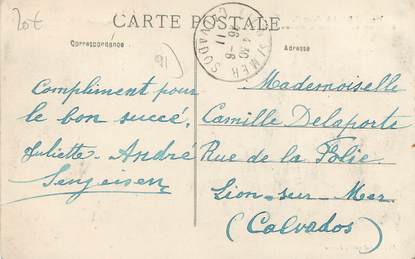 20t
CARTE POSTALE
Correspondance
Adresse
91
Compliment pour
le bon succé,
Juliette - André
Mademoiselle
Camille Delaporte
Rue de la Folie
Lion-sur-Mer
(Calvados)